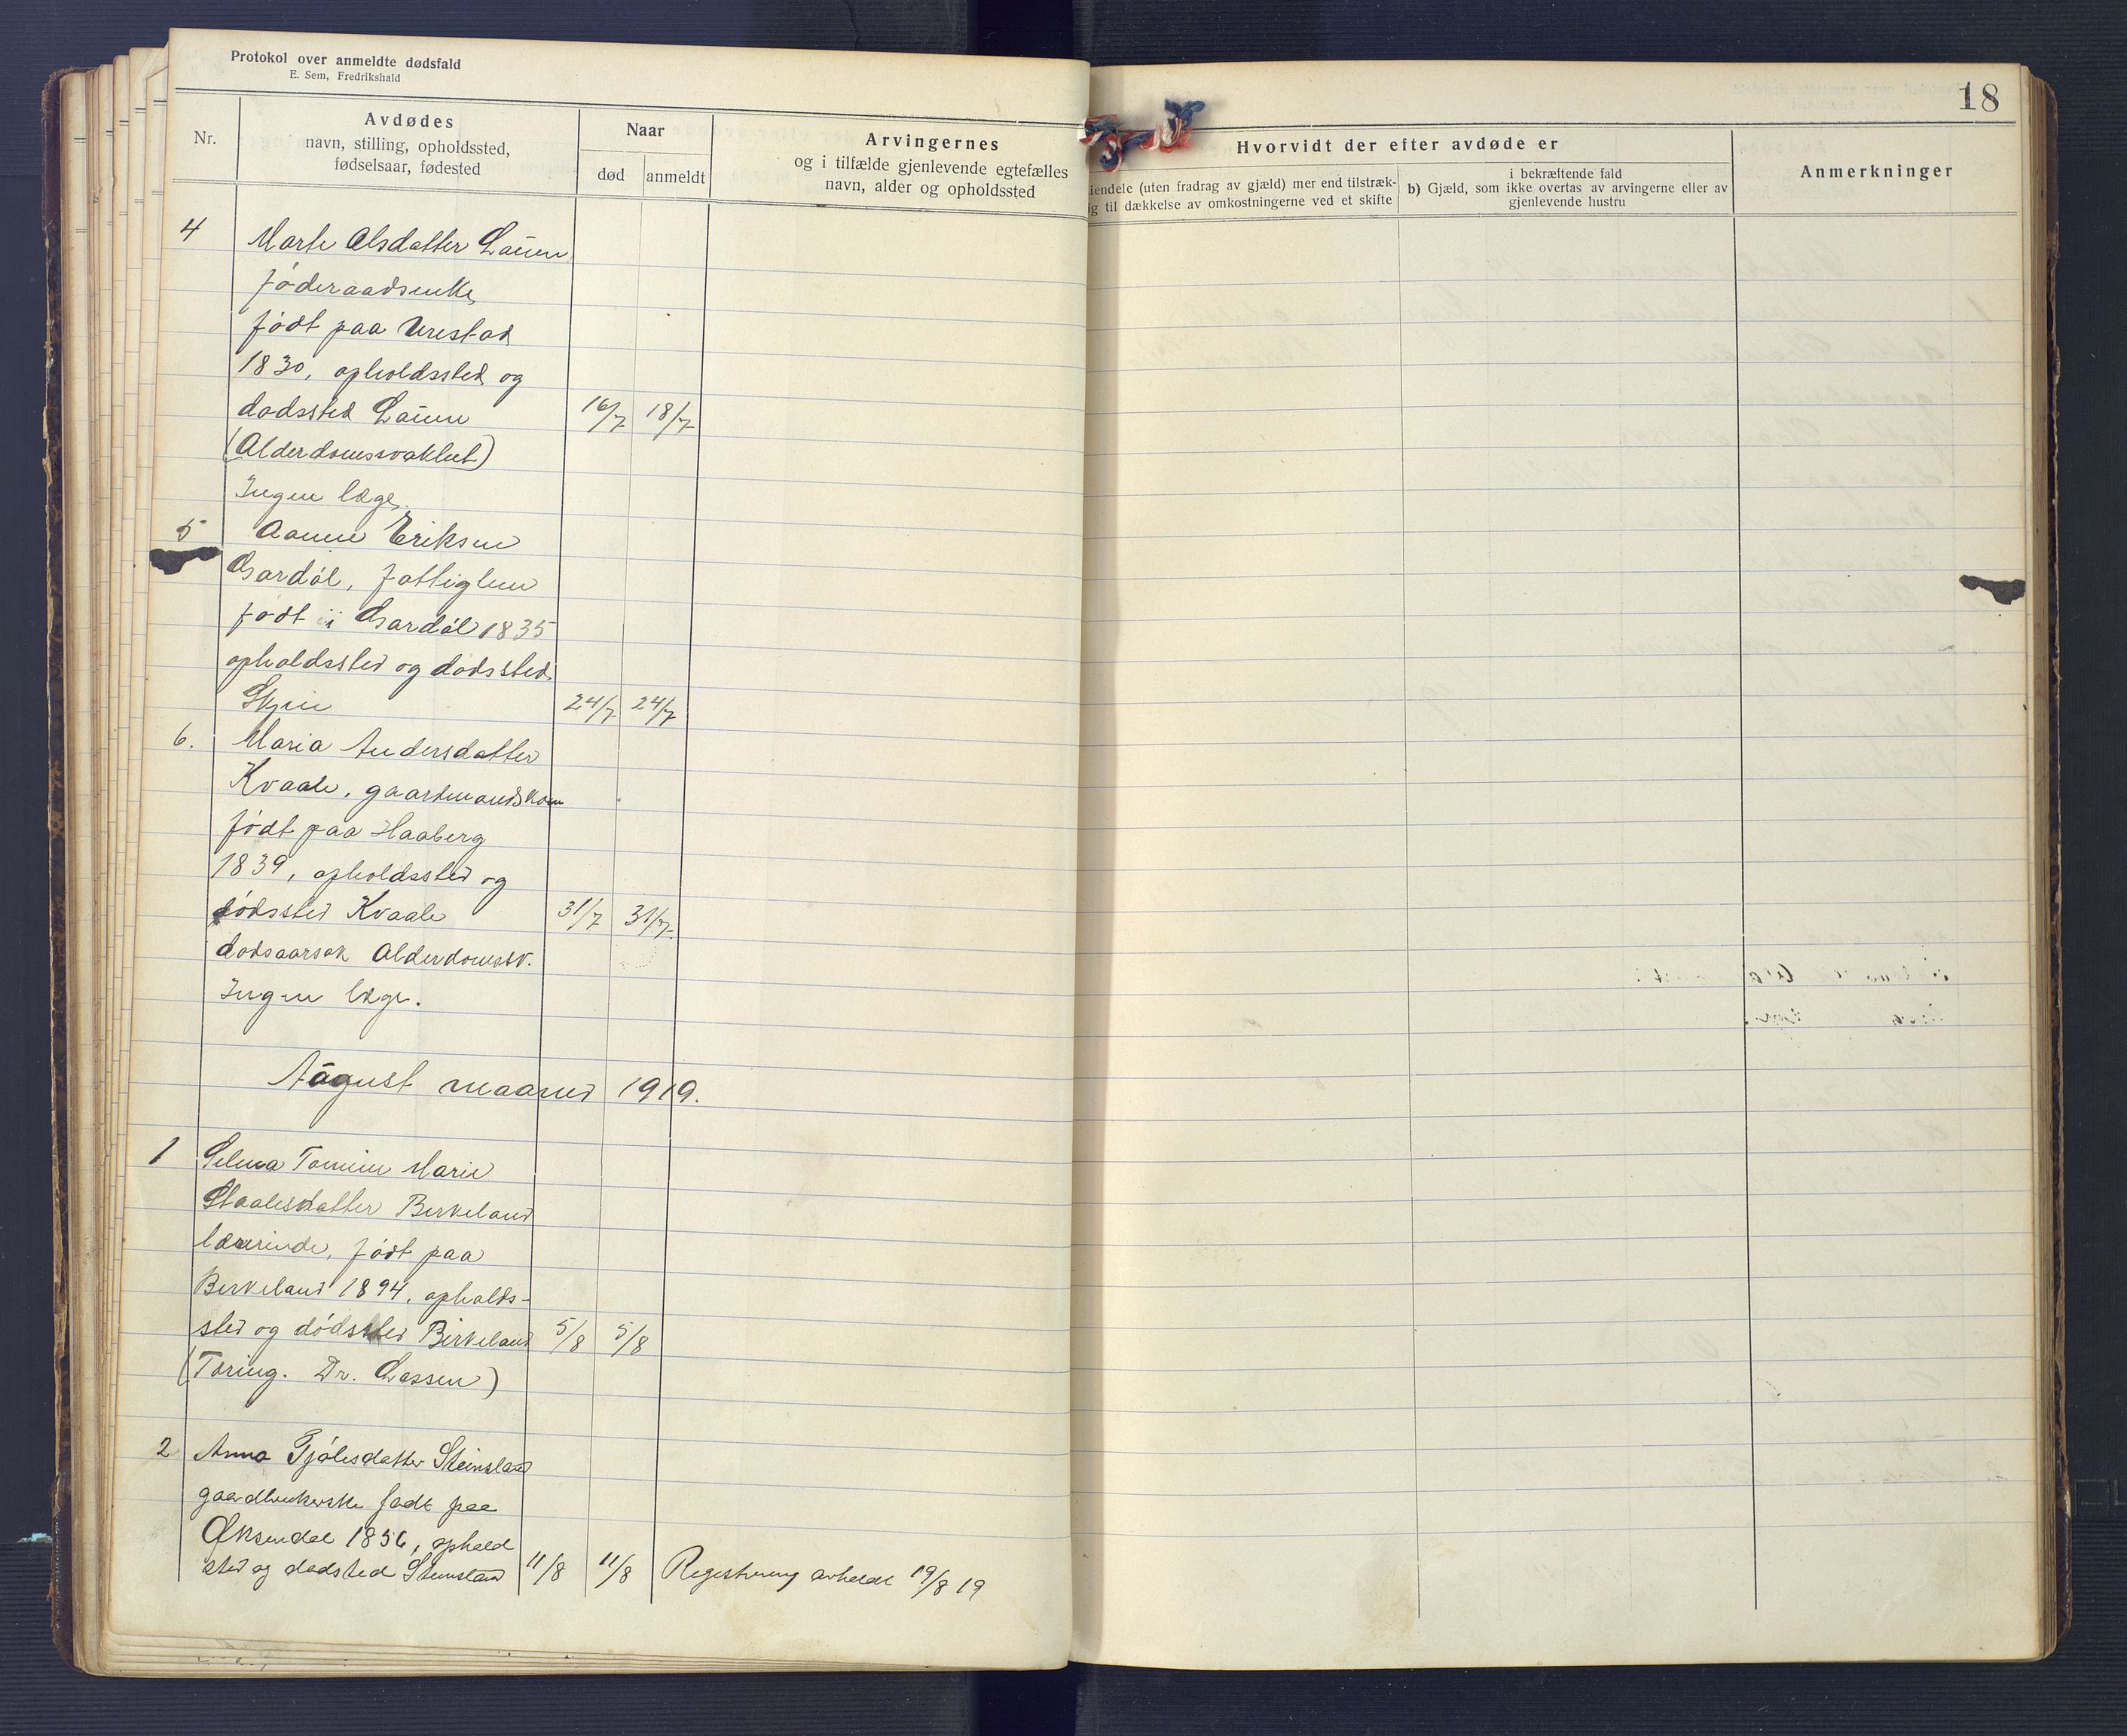 Protokol over anmeldte dødsfald
E. Sem, Fredrikshald
18
Nr.
Avdødes
navn, stilling, opholdssted,
fødselsaar, fødested
Naar
død
anmeldt
Arvingernes
og i tilfælde gjenlevende egtefælles
navn, alder og opholdssted
Hvorvidt der efter avdøde er
iendele (uten fradrag av gjæld) mer end tilstræk-
ig til dækkelse av omkostningerne ved et skifte
i bekræftende fald
b) Gjæld, som ikke overtas av arvingerne eller av
gjenlevende hustru
Anmerkninger
4 Marte Olsdatter Laune
føderaadsenke,
født paa Urestad
1830, opholdssted og
dødssted Laune 16/7 18/7
(Alderdomssvakhet)
Ingen læge.
5 Aanen Eriksen
Gardøl, fattiglem
født i Gardøl 1835
opholdssted og dødssted
24/7 24/7
6. Maria Andersdatter
Kvaale, gaardmandskone
født paa Haaberg
1839, opholdssted og
dødssted Kvaale 31/7 31/7.
dødsaarsak Alderdomssv.
Ingen læge.
August maaned 1919.
1 Selma Tomine Marie
Staalesdatter Birkeland
lærerinde, født paa
Birkeland 1894, opholds-
sted og dødssted Birkeland 5/8 5/8
(Tæring. Dr. Lassen)
2 Anna Tjølesdatter Steinsland
gaardbrukerske født paa
Øksendal 1856, ophold
sted og dødsted Steinsland 11/8 11/8 Registrering avholdt 19/8 19